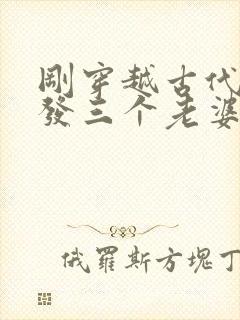 剛穿越古代
發三个老婆
俄羅斯方塊丁